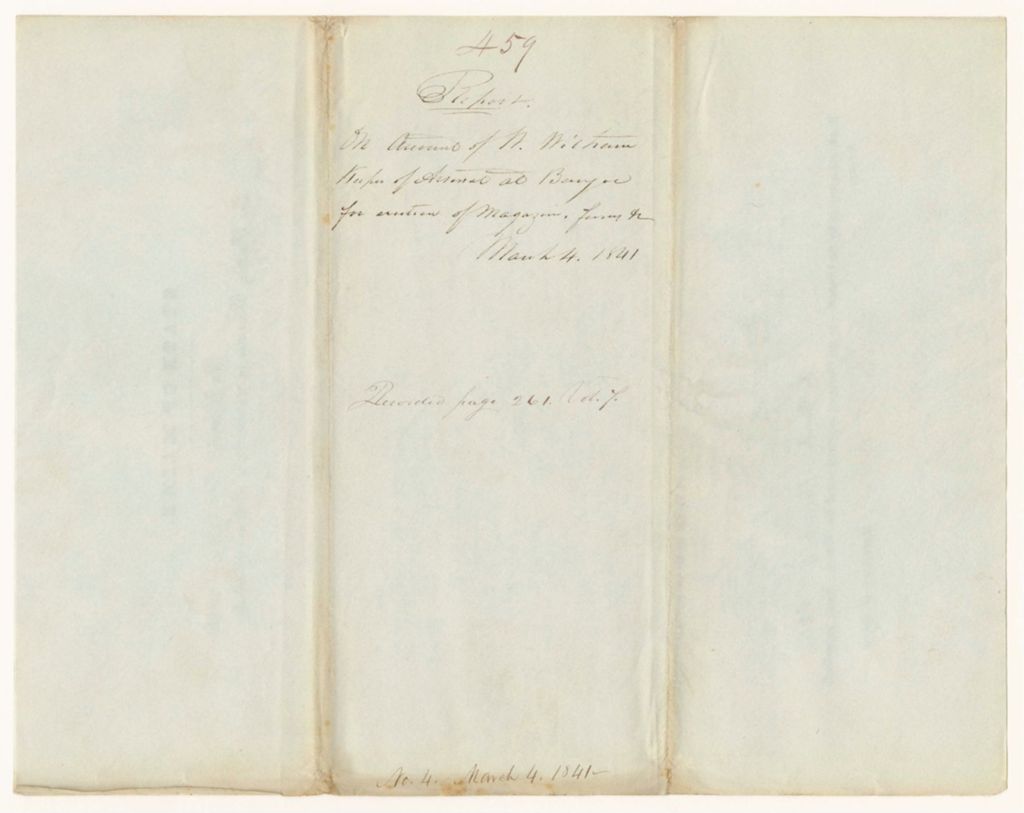 459
Report.
On Account of N. Witham
Keeper of Arsenal at Bangor
for erection of Magazine, fence &c
March 4. 1841
Recorded page 261. Vol. 7.
No. 4. March 4. 1841